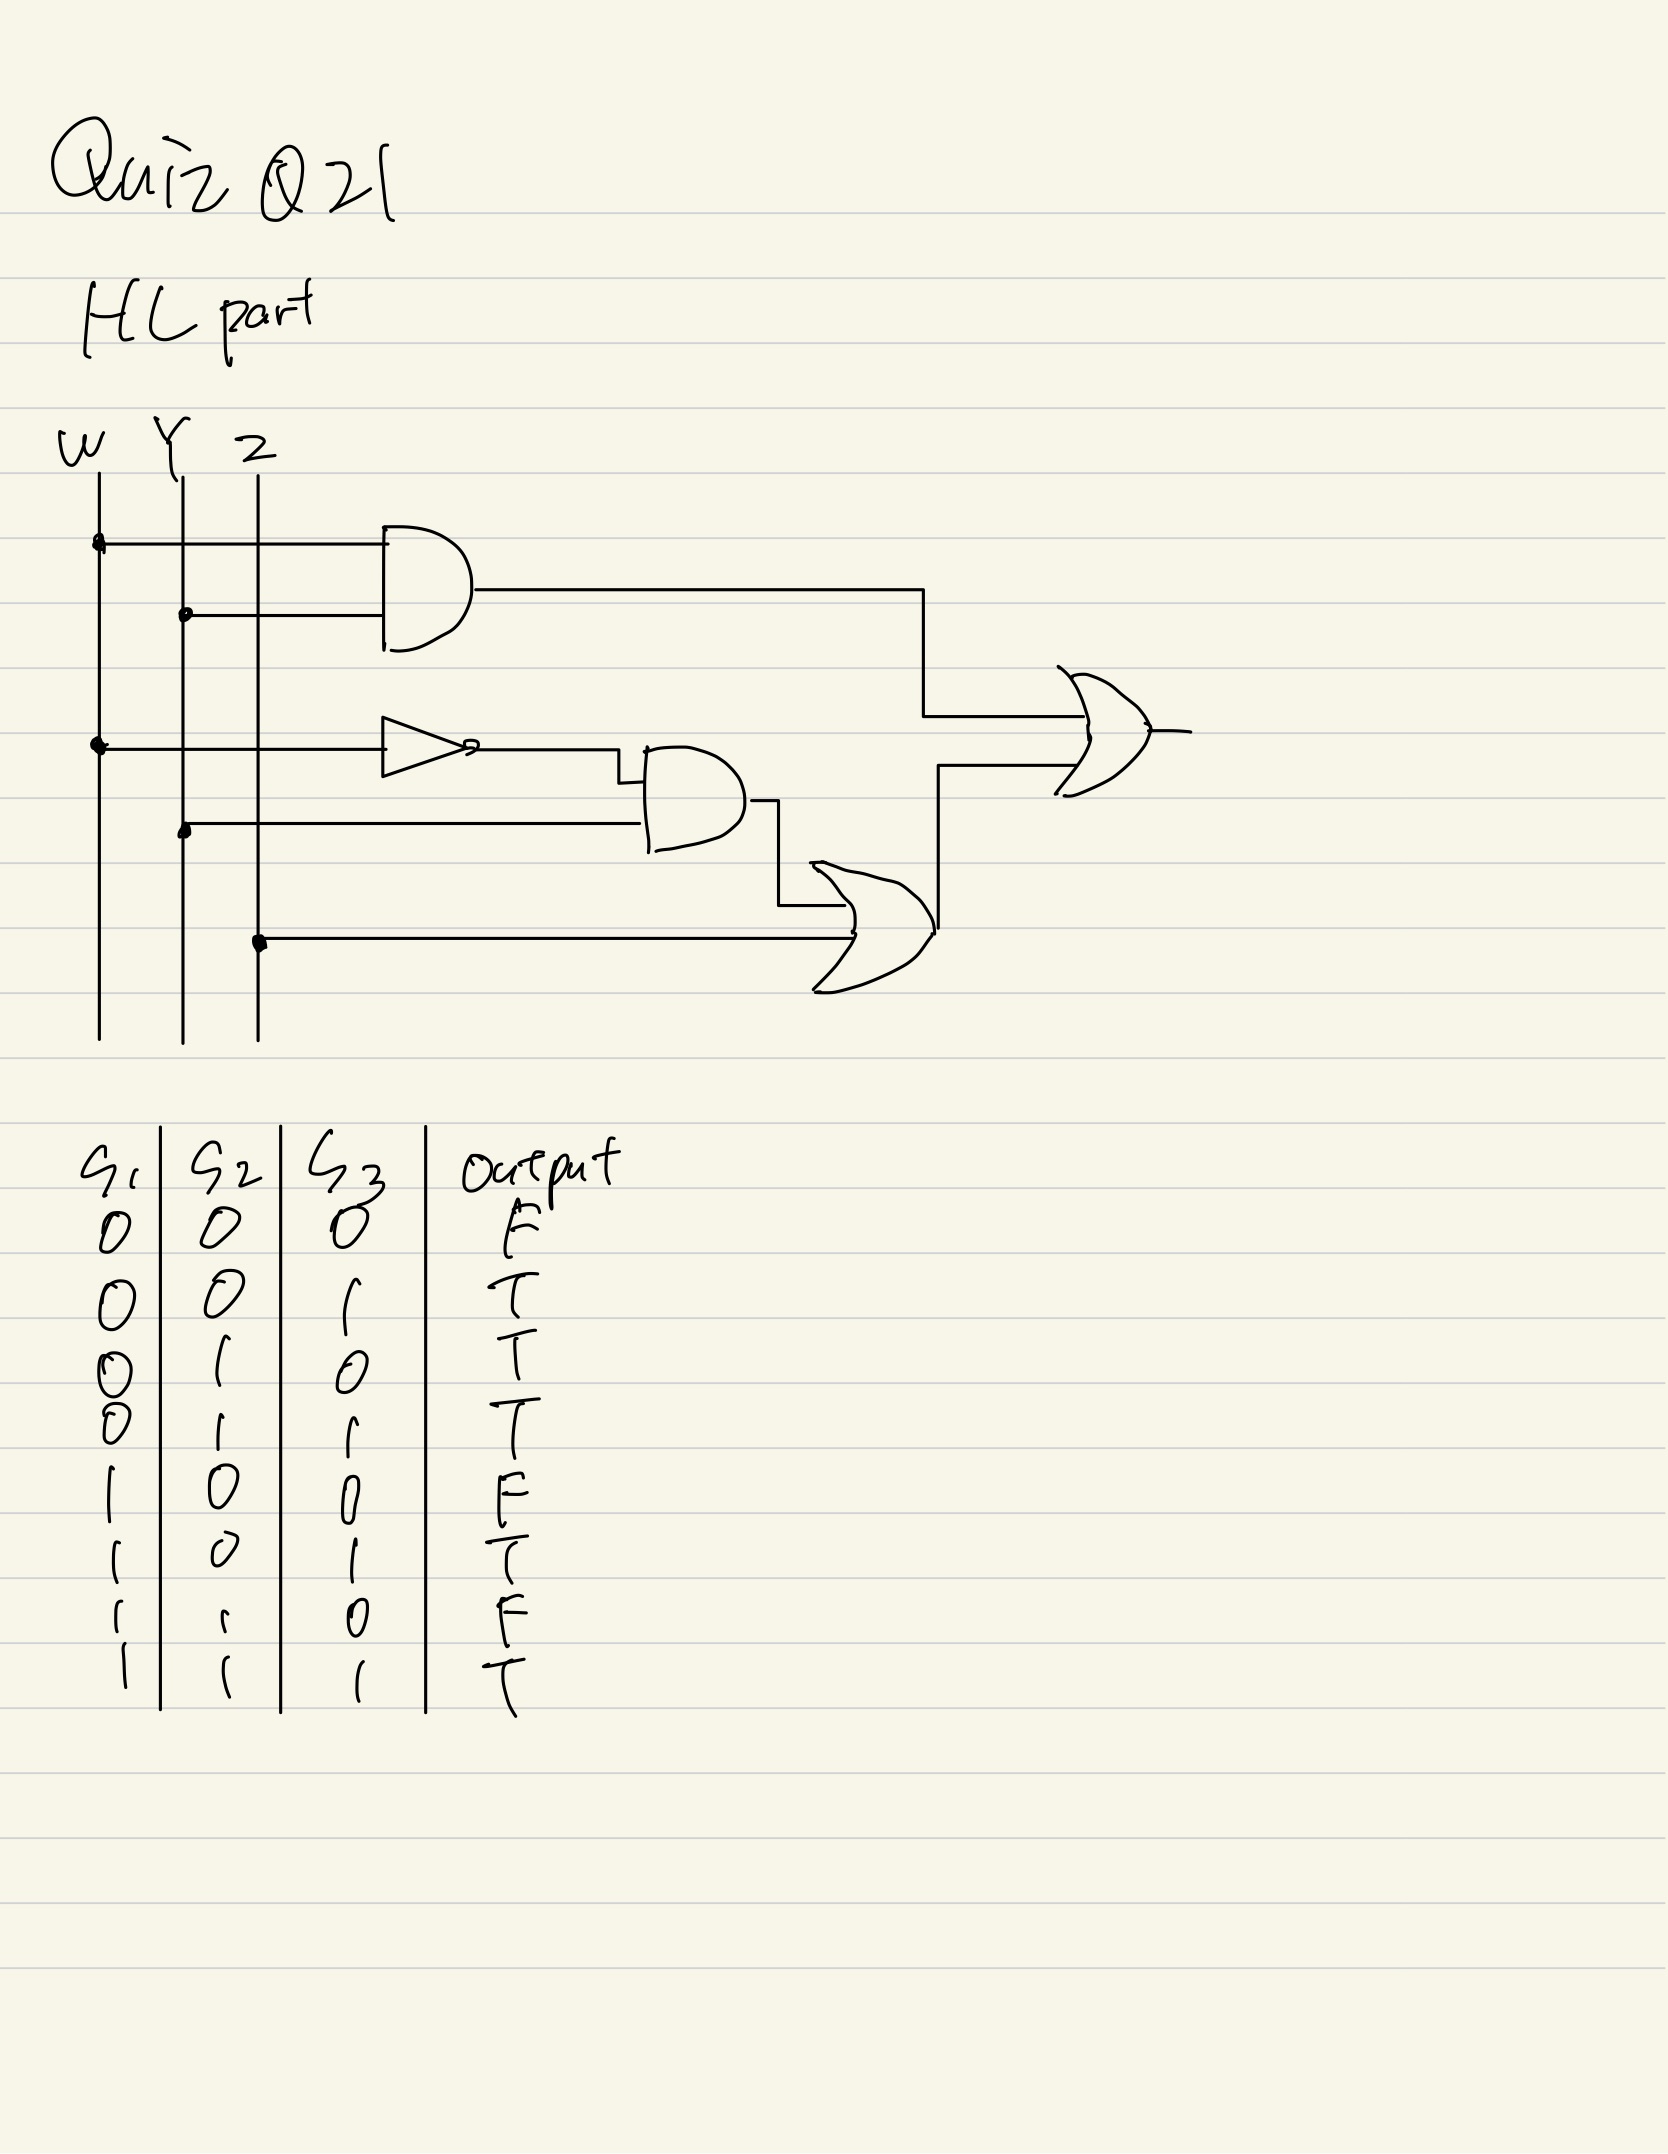 Quiz Q21
HL part
W Y Z
S1 S2 S3 output
0 0 0 F
0 0 1 T
0 1 0 T
0 1 1 T
1 0 0 F
1 0 1 T
1 1 0 F
1 1 1 T